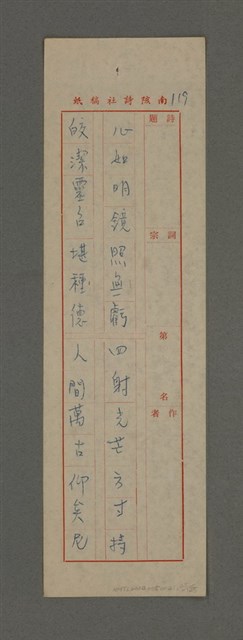 南陔詩社稿紙
119
詩題
詞宗
第名
作者
心如明鏡照無虧 四射光芒方寸持
皎潔靈台堪種德 人間萬古仰矣尼